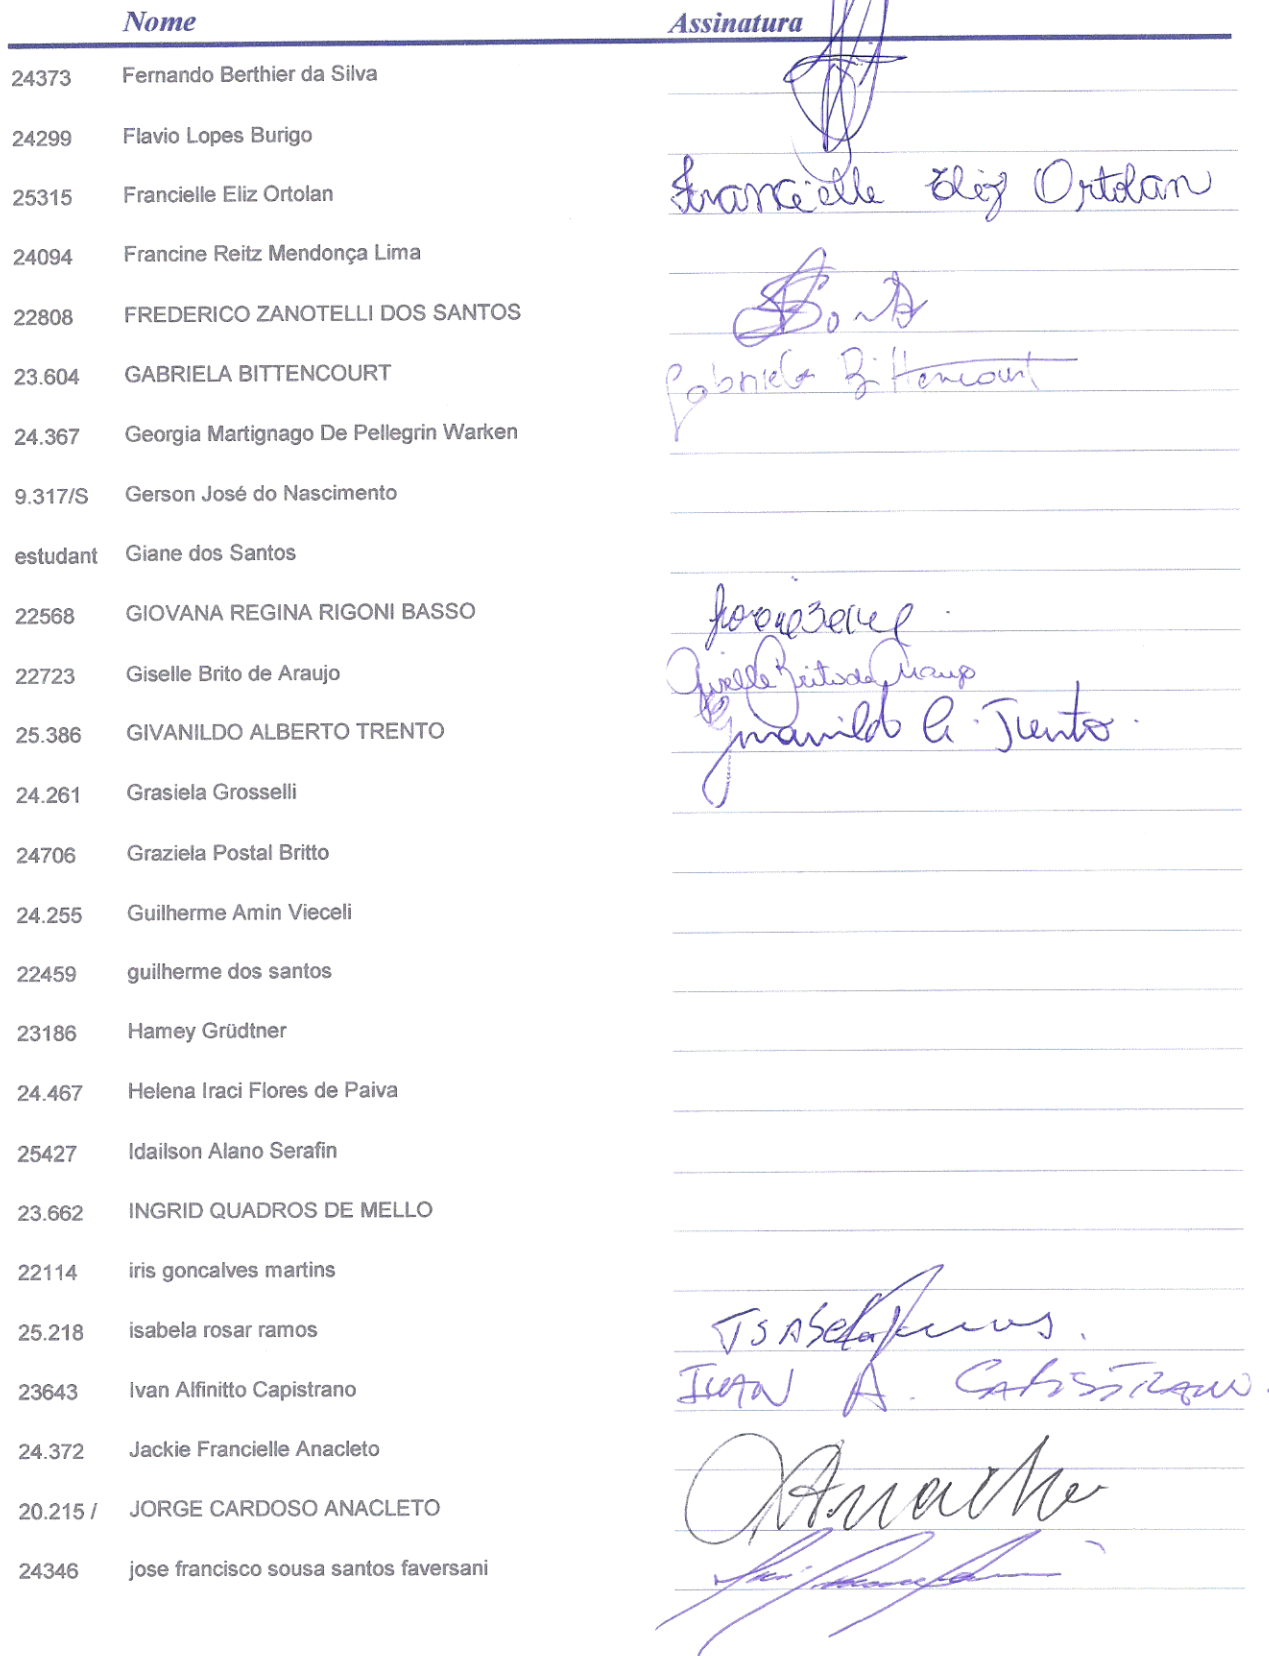 Nome Assinatura
24373 Fernando Berthier da Silva
24299 Flavio Lopes Burigo
25315 Francielle Eliz Ortolan Francielle Eliz Ortolan
24094 Francine Reitz Mendonça Lima
22808 FREDERICO ZANOTELLI DOS SANTOS
23.604 GABRIELA BITTENCOURT Gabriela Bittencourt
24.367 Georgia Martignago De Pellegrin Warken
9.317/S Gerson José do Nascimento
estudant Giane dos Santos
22568 GIOVANA REGINA RIGONI BASSO
22723 Giselle Brito de Araujo Giselle Brito de Araujo
25.386 GIVANILDO ALBERTO TRENTO Givanildo A. Trento.
24.261 Grasiela Grosselli
24706 Graziela Postal Britto
24.255 Guilherme Amin Vieceli
22459 guilherme dos santos
23186 Hamey Grüdtner
24.467 Helena Iraci Flores de Paiva
25427 Idailson Alano Serafin
23.662 INGRID QUADROS DE MELLO
22114 iris goncalves martins
25.218 isabela rosar ramos Isabela Ramos.
23643 Ivan Alfinitto Capistrano IVAN A. CAPISTRANO.
24.372 Jackie Francielle Anacleto
20.215 / JORGE CARDOSO ANACLETO
24346 jose francisco sousa santos faversani